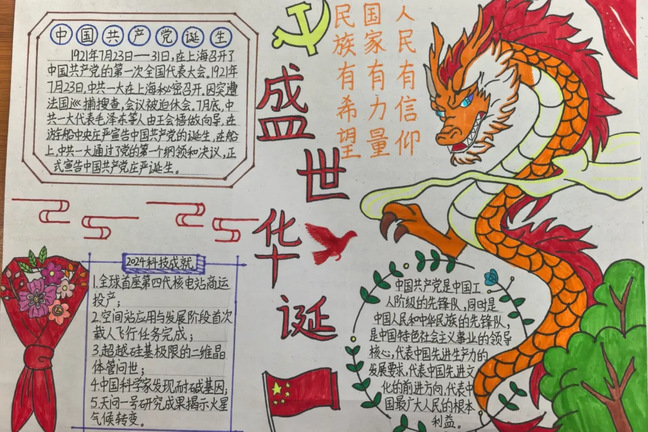 中国共产党诞生
1921年7月23日—31日,在上海召开了
中国共产党的第一次全国代表大会。1921年
7月23日,中共一大在上海秘密召开,因突遭
法国巡捕搜查,会议被迫休会。7月底,中
共一大代表毛泽东等人由王会悟做向导,在
游船中央庄严宣告中国共产党的诞生,在船
上,中共一大通过了党的第一个纲领和决议,正
式宣告中国共产党庄严诞生。
人民有信仰
国家有力量
民族有希望
盛世华诞
2024科技成就
1.全球首座第四代核电站商运
投产;
2.空间站应用与发展阶段首次
载人飞行任务完成;
3.超越硅基极限的二维晶
体管问世;
4.中国科学家发现耐碱基因;
5.天问一号研究成果揭示火星
气候转变。
中国共产党是中国工
人阶级的先锋队,同时是
中国人民和中华民族的先锋队,
是中国特色社会主义事业的领导
核心,代表中国先进生产力的
发展要求,代表中国先进文
化的前进方向,代表中
国最广大人民的根本
利益。